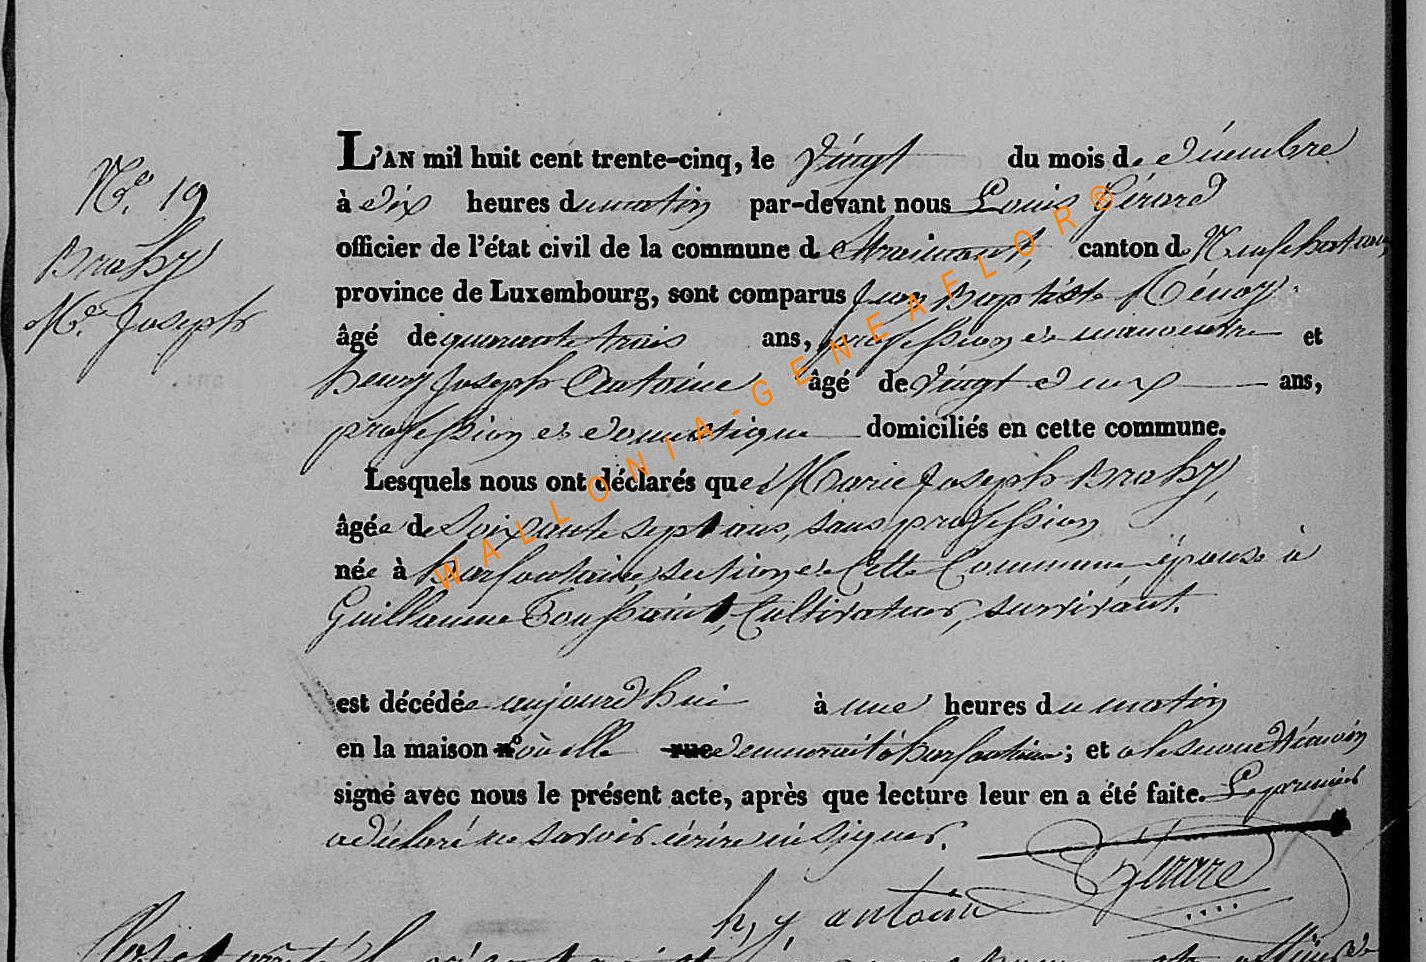 N.º 19
Brahy
M.e Joseph
L'AN mil huit cent trente-cinq, le vingt du mois de décembre
à dix heures du matin par-devant nous Louis Gérard
officier de l'état civil de la commune de Straimont, canton de Neufchateau,
province de Luxembourg, sont comparus Jean Baptiste
âgé de quarante trois ans, profession de manoeuvre et
henry Joseph Antoine âgé de vingt deux ans,
profession de domestique domiciliés en cette commune.
Lesquels nous ont déclarés que Marie Joseph Brahy,
âgée de Soixante sept ans, sans profession
née à section de Cette Commune épouse à
Guillaume Toussaint, Cultivateur, survivant.
est décédée aujourd'hui à une heures du matin
en la maison où elle demeurait à ; et le second témoin
signé avec nous le présent acte, après que lecture leur en a été faite. Le premier
a déclaré ne savoir écrire ni signer.
Gerard
h, y antoine
WALLONIA-GENEAFLOR®